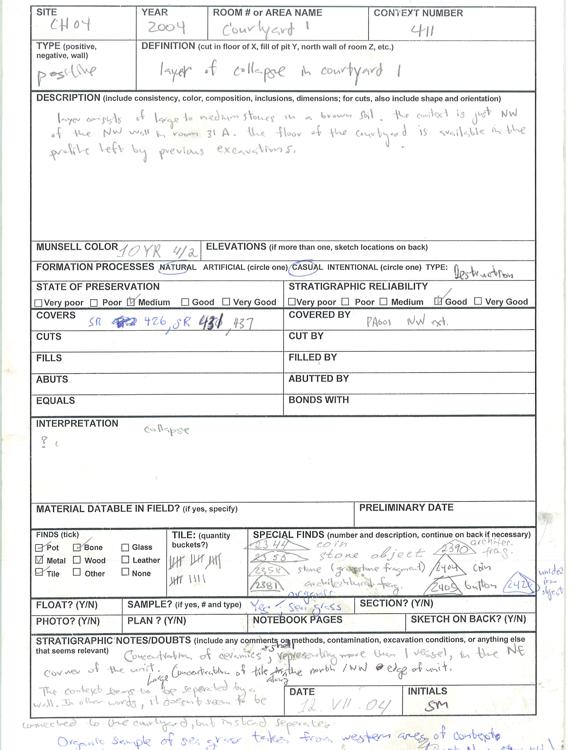 SITE YEAR ROOM # or AREA NAME CONTEXT NUMBER
CH04 2004 Courtyard 1 411
TYPE (positive, negative, wall) DEFINITION (cut in floor of X, fill of pit Y, north wall of room Z, etc.)
positive layer of collapse in courtyard 1
DESCRIPTION (include consistency, color, composition, inclusions, dimensions; for cuts, also include shape and orientation)
layer consists of large to medium stones in a brown soil. the context is just NW
of the NW wall in room 31A. the floor of the courtyard is available in the
profile left by previous excavations.
MUNSELL COLOR 10YR 4/2 ELEVATIONS (if more than one, sketch locations on back)
FORMATION PROCESSES NATURAL ARTIFICIAL (circle one) CASUAL INTENTIONAL (circle one) TYPE: Destruction
STATE OF PRESERVATION STRATIGRAPHIC RELIABILITY
Very poor Poor Medium Good Very Good Very poor Poor Medium Good Very Good
COVERS SR 426, SR 431, 437 COVERED BY PA001 NW ext.
CUTS CUT BY
FILLS FILLED BY
ABUTS ABUTTED BY
EQUALS BONDS WITH
INTERPRETATION collapse
?
MATERIAL DATABLE IN FIELD? (if yes, specify) PRELIMINARY DATE
FINDS (tick) TILE: (quantity buckets?) SPECIAL FINDS (number and description, continue on back if necessary)
Pot Bone Glass
Metal Wood Leather
Tile Other None
2344 coin 2390 architec. frag.
2355 stone object
2358 stone (grindstone fragment) 2404 coin
2381 architectural frag. 2405 button 2421
organic
FLOAT? (Y/N) SAMPLE? (if yes, # and type) Yes, sea grass SECTION? (Y/N)
PHOTO? (Y/N) PLAN ? (Y/N) NOTEBOOK PAGES SKETCH ON BACK? (Y/N)
STRATIGRAPHIC NOTES/DOUBTS (include any comments on methods, contamination, excavation conditions, or anything else that seems relevant)
Concentration of ceramics, + shell representing more than 1 vessel, in the NE
corner of the unit. Large concentration of tile along to the north / NW edge of unit.
The context seems to be seperated by a
wall. In other words, it doesn't seem to be
DATE 12.VII.04 INITIALS SM
connected to the courtyard, but instead seperate.
Organic sample of sea grass taken from western area of context